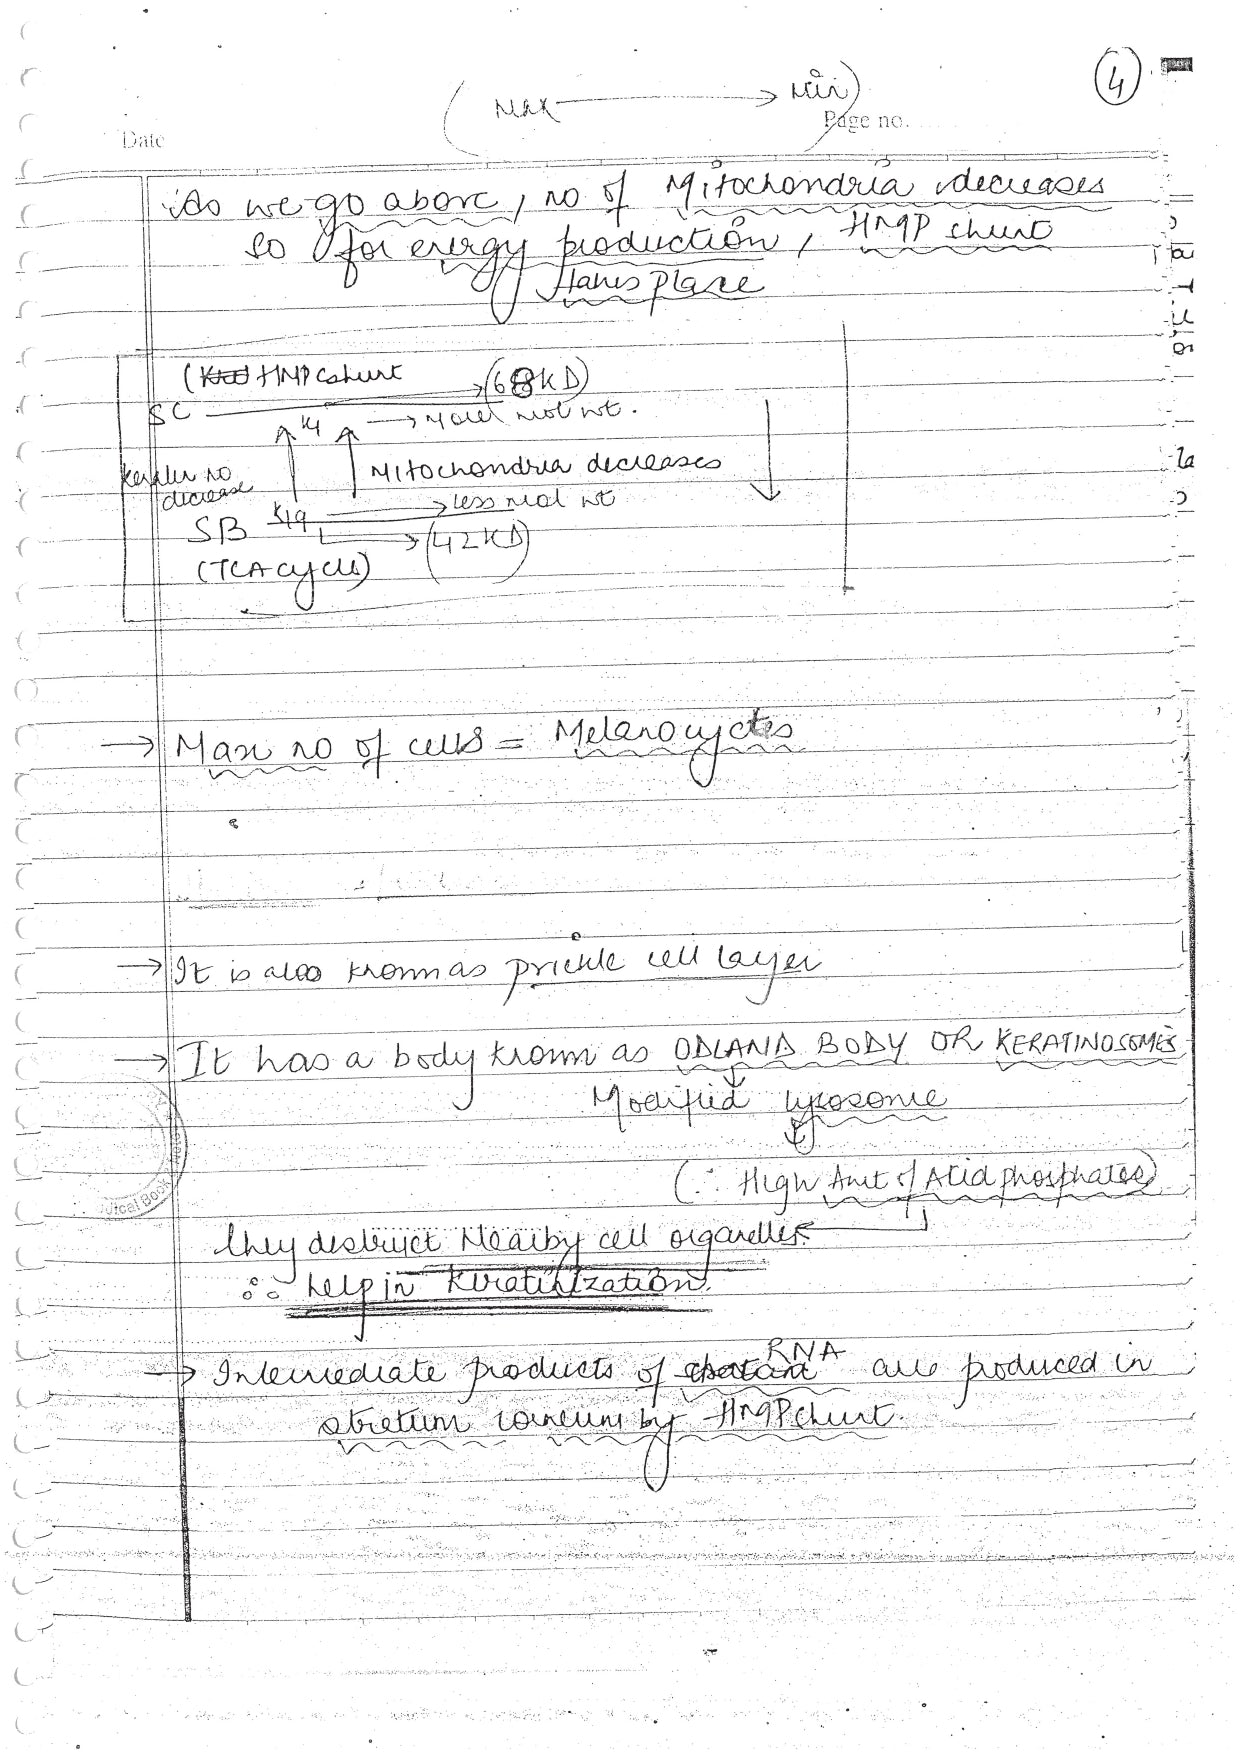 4
(Max → Min)
Date
Page no.
As we go above, no of Mitochondria decreases
so for energy production, HMP shunt
takes place
(HMP shunt → (68KD)
SC K4 → More mol wt.
Keratin no
decrease
Mitochondria decreases
SB K19 → less mol wt
→ (42KD)
(TCA cycle)
→ Max no of cells = Melanocyctes
→ It is also known as prickle cell layer
→ It has a body known as ODLAND BODY OR KERATINOSOMES
Modified lysosome
(∵ High Amt of Acid phosphates)
they destruct Nearby cell organelles
∴ help in keratinization.
→ Intermediate products of RNA are produced in
stratum corneum by HMP shunt.
ical Book